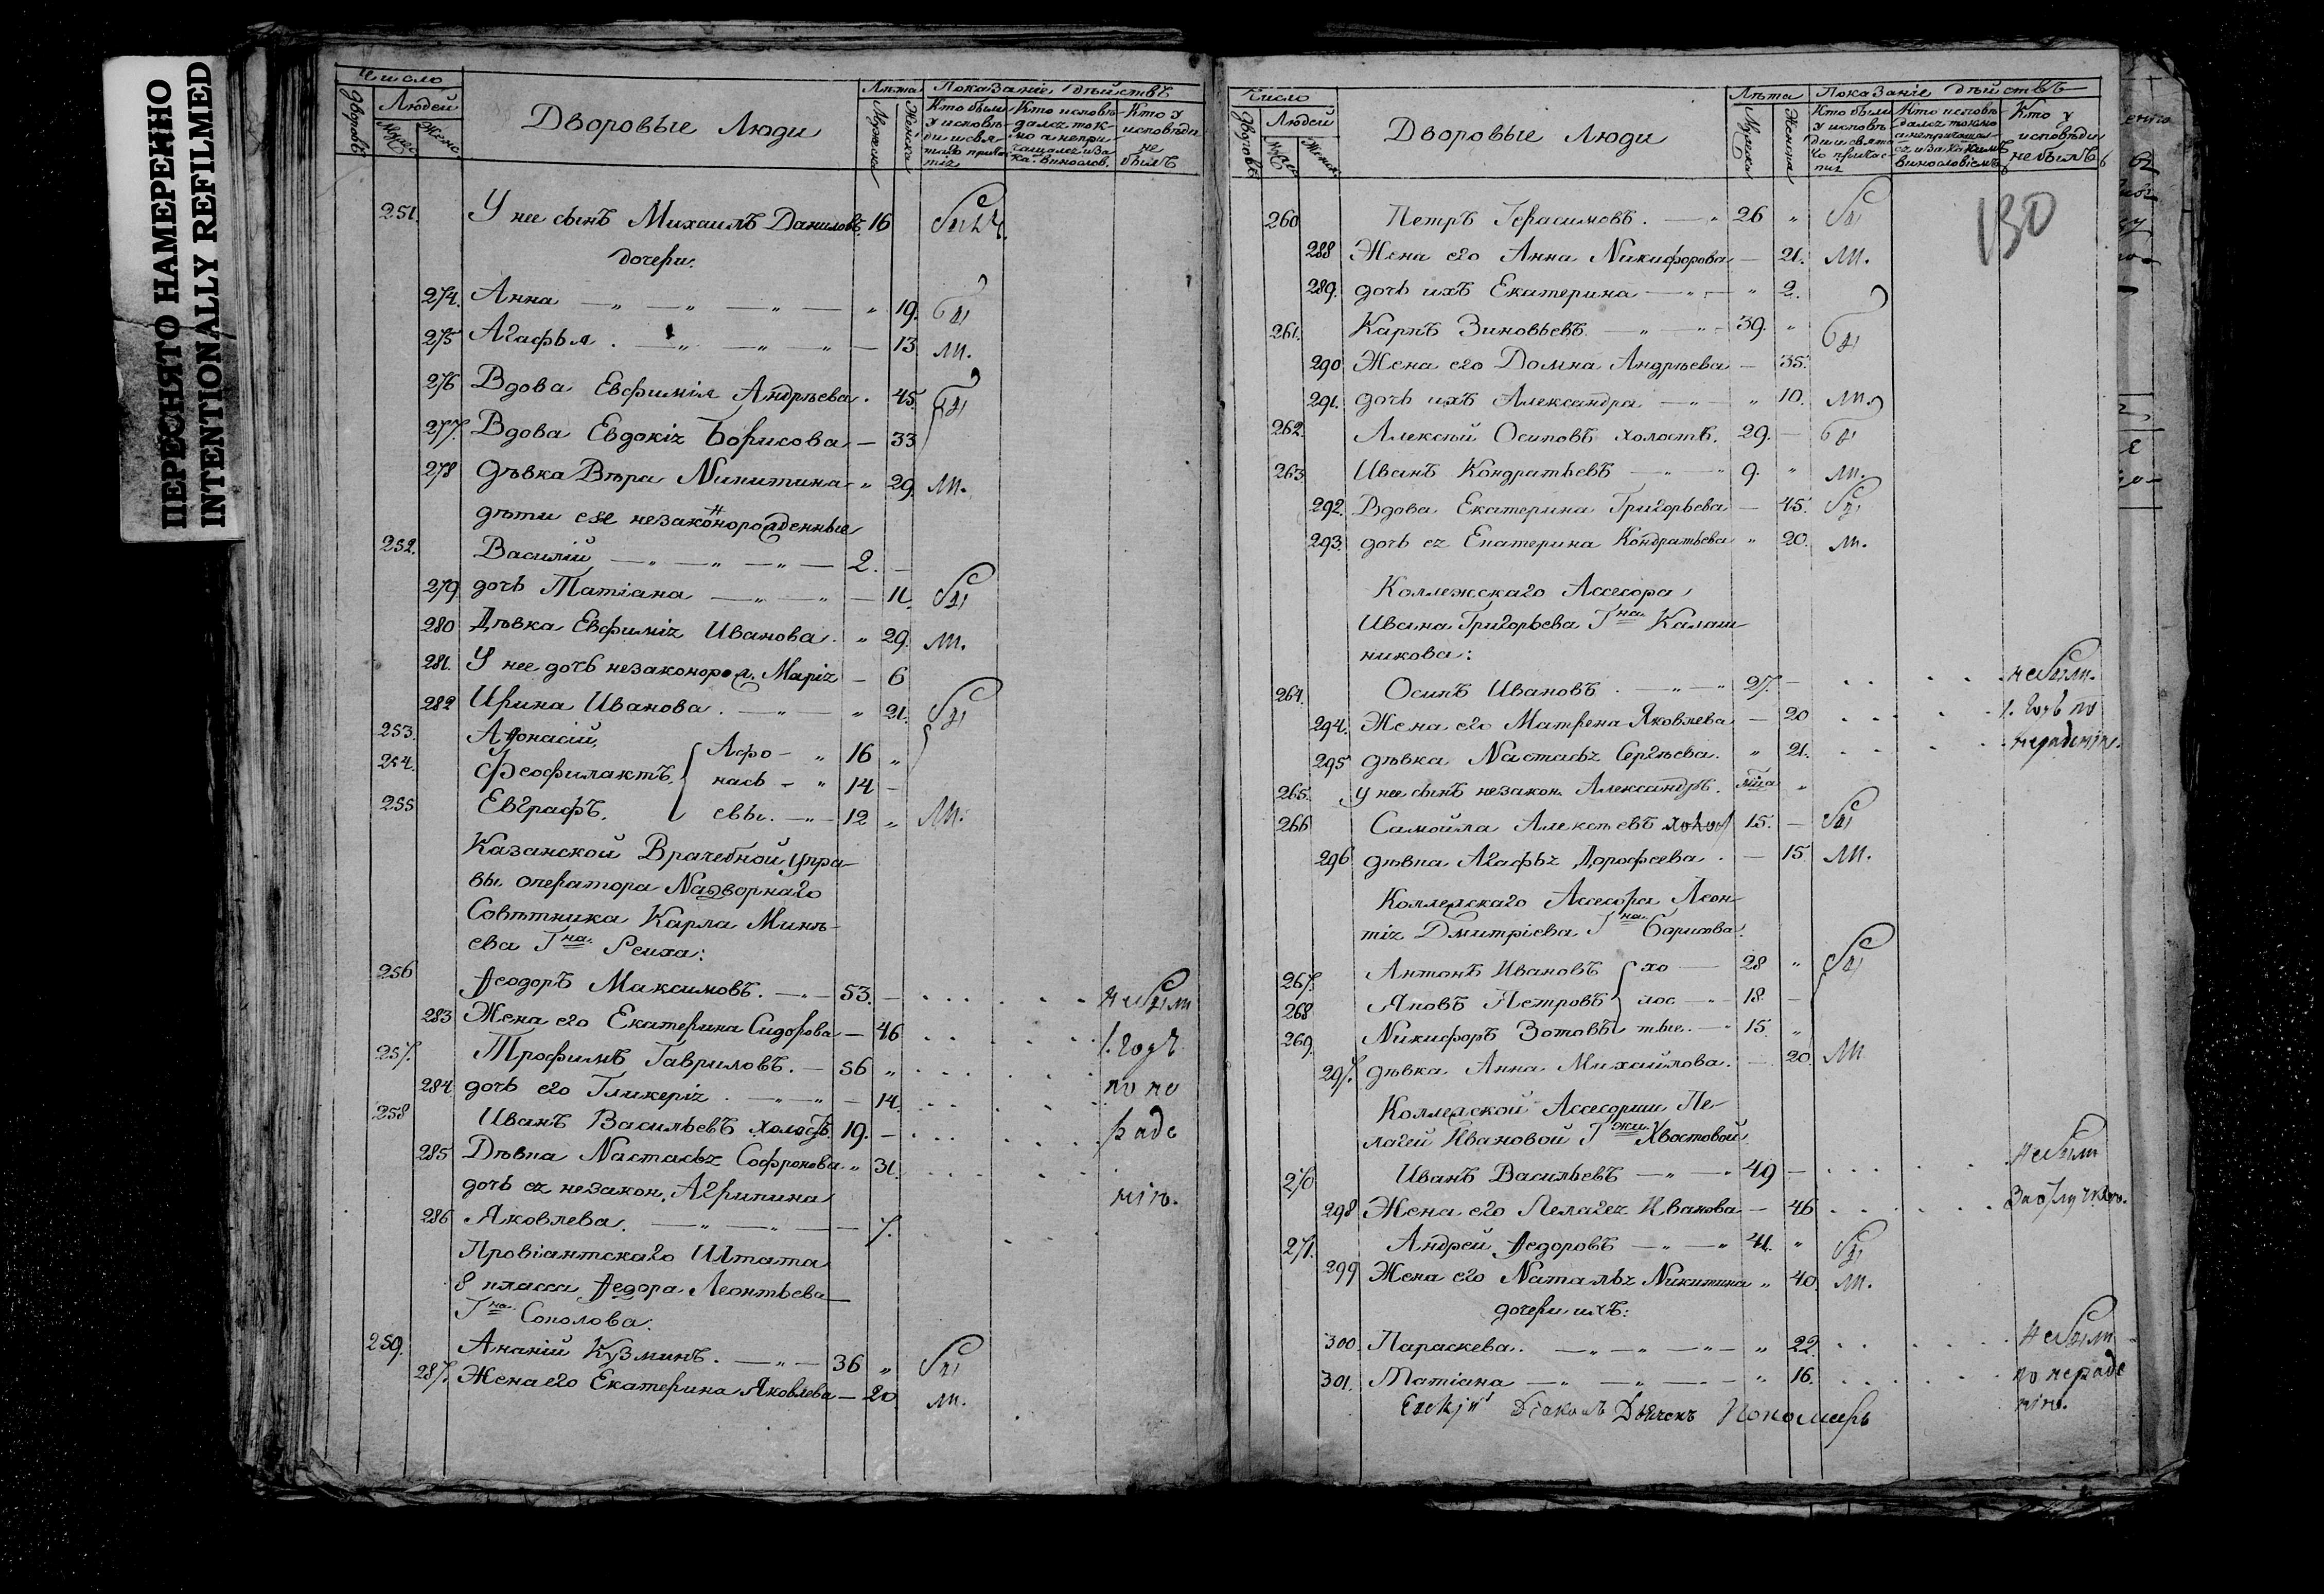 ПЕРЕСНЯТО НАМЕРЕННО
INTENTIONALLY REFILMED
Число
Дворовъ
Людей
Мужес.
Женс.
Дворовые Люди
Лѣта
Мужеска
Женска
Показаніе дѣйствъ
Кто были у исповѣди и свята­го прича­тія
Кто исповѣ­дался ток­мо а непри­чащался и за ка. винослов.
Кто у исповѣди не былъ
251. У нее сынъ Михаилъ Даниловъ. 16 были.
дочери.
274. Анна — „ — „ — „ — „ 19. бы
275 Агафья . — „ — „ — „ — 13 ли.
276 Вдова Евфимія Андрѣева . 45. бы
277. Вдова Евдокія Борисова — 33
278 дѣвка Вѣра Никитина „ 29. ли.
дѣти ея незаконорожденные
252. Василій — „ — „ — „ — 2. —
279. дочь Татіана — „ — „ — 11. бы
280 Дѣвка Евфимія Иванова . „ 29. ли.
281. У нее дочь незаконорож. Марія — 6
282 Ирина Иванова . — „ — „ 21. бы
253. Афонасій, Афо — „ 16 „
254. Феофилактъ, нась — „ 14 —
255 Евграфъ. евы. — „ — 12 „ ли.
Казанской Врачебной Упра­
вы оператора Надворнаго
Совѣтника Карла Минѣ­
ева Гна. Реиха:
256 Ѳеодоръ Максимовъ. — „ — 53. — небыли
283 Жена его Екатерина Сидорова — 46 1. годъ
257. Трофимъ Гавриловъ. — 56 „ по не
284. дочь его Гликерія . — „ — „ — 14. раде
258 Иванъ Васильевъ холостъ. 19. —
285 Дѣвка Настасья Софронова „ 31. нію.
дочь ея незакон. Агрипина
286 Яковлева. — „ — „ — 7.
Провіантскаго Штата
8 класса Ѳедора Леонтьева
Гна. Соколова.
259. Ананій Кузминъ. — „ — 36 „ бы
287. Жена его Екатерина Яковлева — 20 ли.
Число
Дворовъ
Людей
Женс.
Дворовые Люди
Лѣта
Мужска
Женска
Показаніе дѣйствъ
Кто были у исповѣ­ди и свята­го причас­тія
Кто исповѣ­дался токмо а непричащал­ся и за какимъ винословіемъ
Кто у исповѣди не былъ
130
260 Петръ Герасимовъ. — „ 26 „ бы
288 Жена его Анна Никифорова — 21. ли.
289. дочь ихъ Екатерина — „ — „ 2.
261. Карпъ Зиновьевъ — „ — „ — 39. „ бы
290 Жена его Домна Андрѣева — 35.
291. дочь ихъ Александра — „ — „ 10. ли.
262. Алексѣй Осиповъ холостъ. 29. — бы
263 Иванъ Кондратьевъ — „ — „ 9. „ ли.
292. Вдова Екатерина Григорьева — 45. бы
293. дочь ея Екатерина Кондратьева „ 20. ли.
Коллежскаго Ассесора
Ивана Григорьева Гна. Калаш­
никова:
264. Осипъ Ивановъ . — „ — „ 27. — небыли.
294. Жена его Матрена Яковлева — 20 1. годъ по
295 дѣвка Настасья Сергѣева. „ 21. нерадѣнію.
265. у нее сынъ незакон. Александръ. мца „
266 Самойла Алексѣевъ холос 15. — бы
296 дѣвка Агафья Дорофеева . — 15. ли.
Коллежскаго Ассесора Леон­
тія Дмитріева Гна. Борисова.
267. Антонъ Ивановъ хо — 28 „ бы
268 Яковъ Петровъ лос — „ 18. —
269. Никифоръ Зотовъ тые. — „ 15. „
297. дѣвка Анна Михайлова. — 20. ли
Коллежской Ассесорши Пе­
лагеи Ивановой Гжи. Хвостовой.
270 Иванъ Васильевъ — „ — „ 49 — небыли
298 Жена его Пелагея Иванова — 46 За отлучкою.
271. Андрей Ѳедоровъ — „ — „ 41. „ бы
299 Жена его Наталья Никитина „ 40. ли.
дочери ихъ:
300 Параскева. — „ — „ — „ — „ 22. небыли
301. Татіана — „ — „ — „ 16. по нераде
нію.
Діаконъ Дьячекъ Пономарь